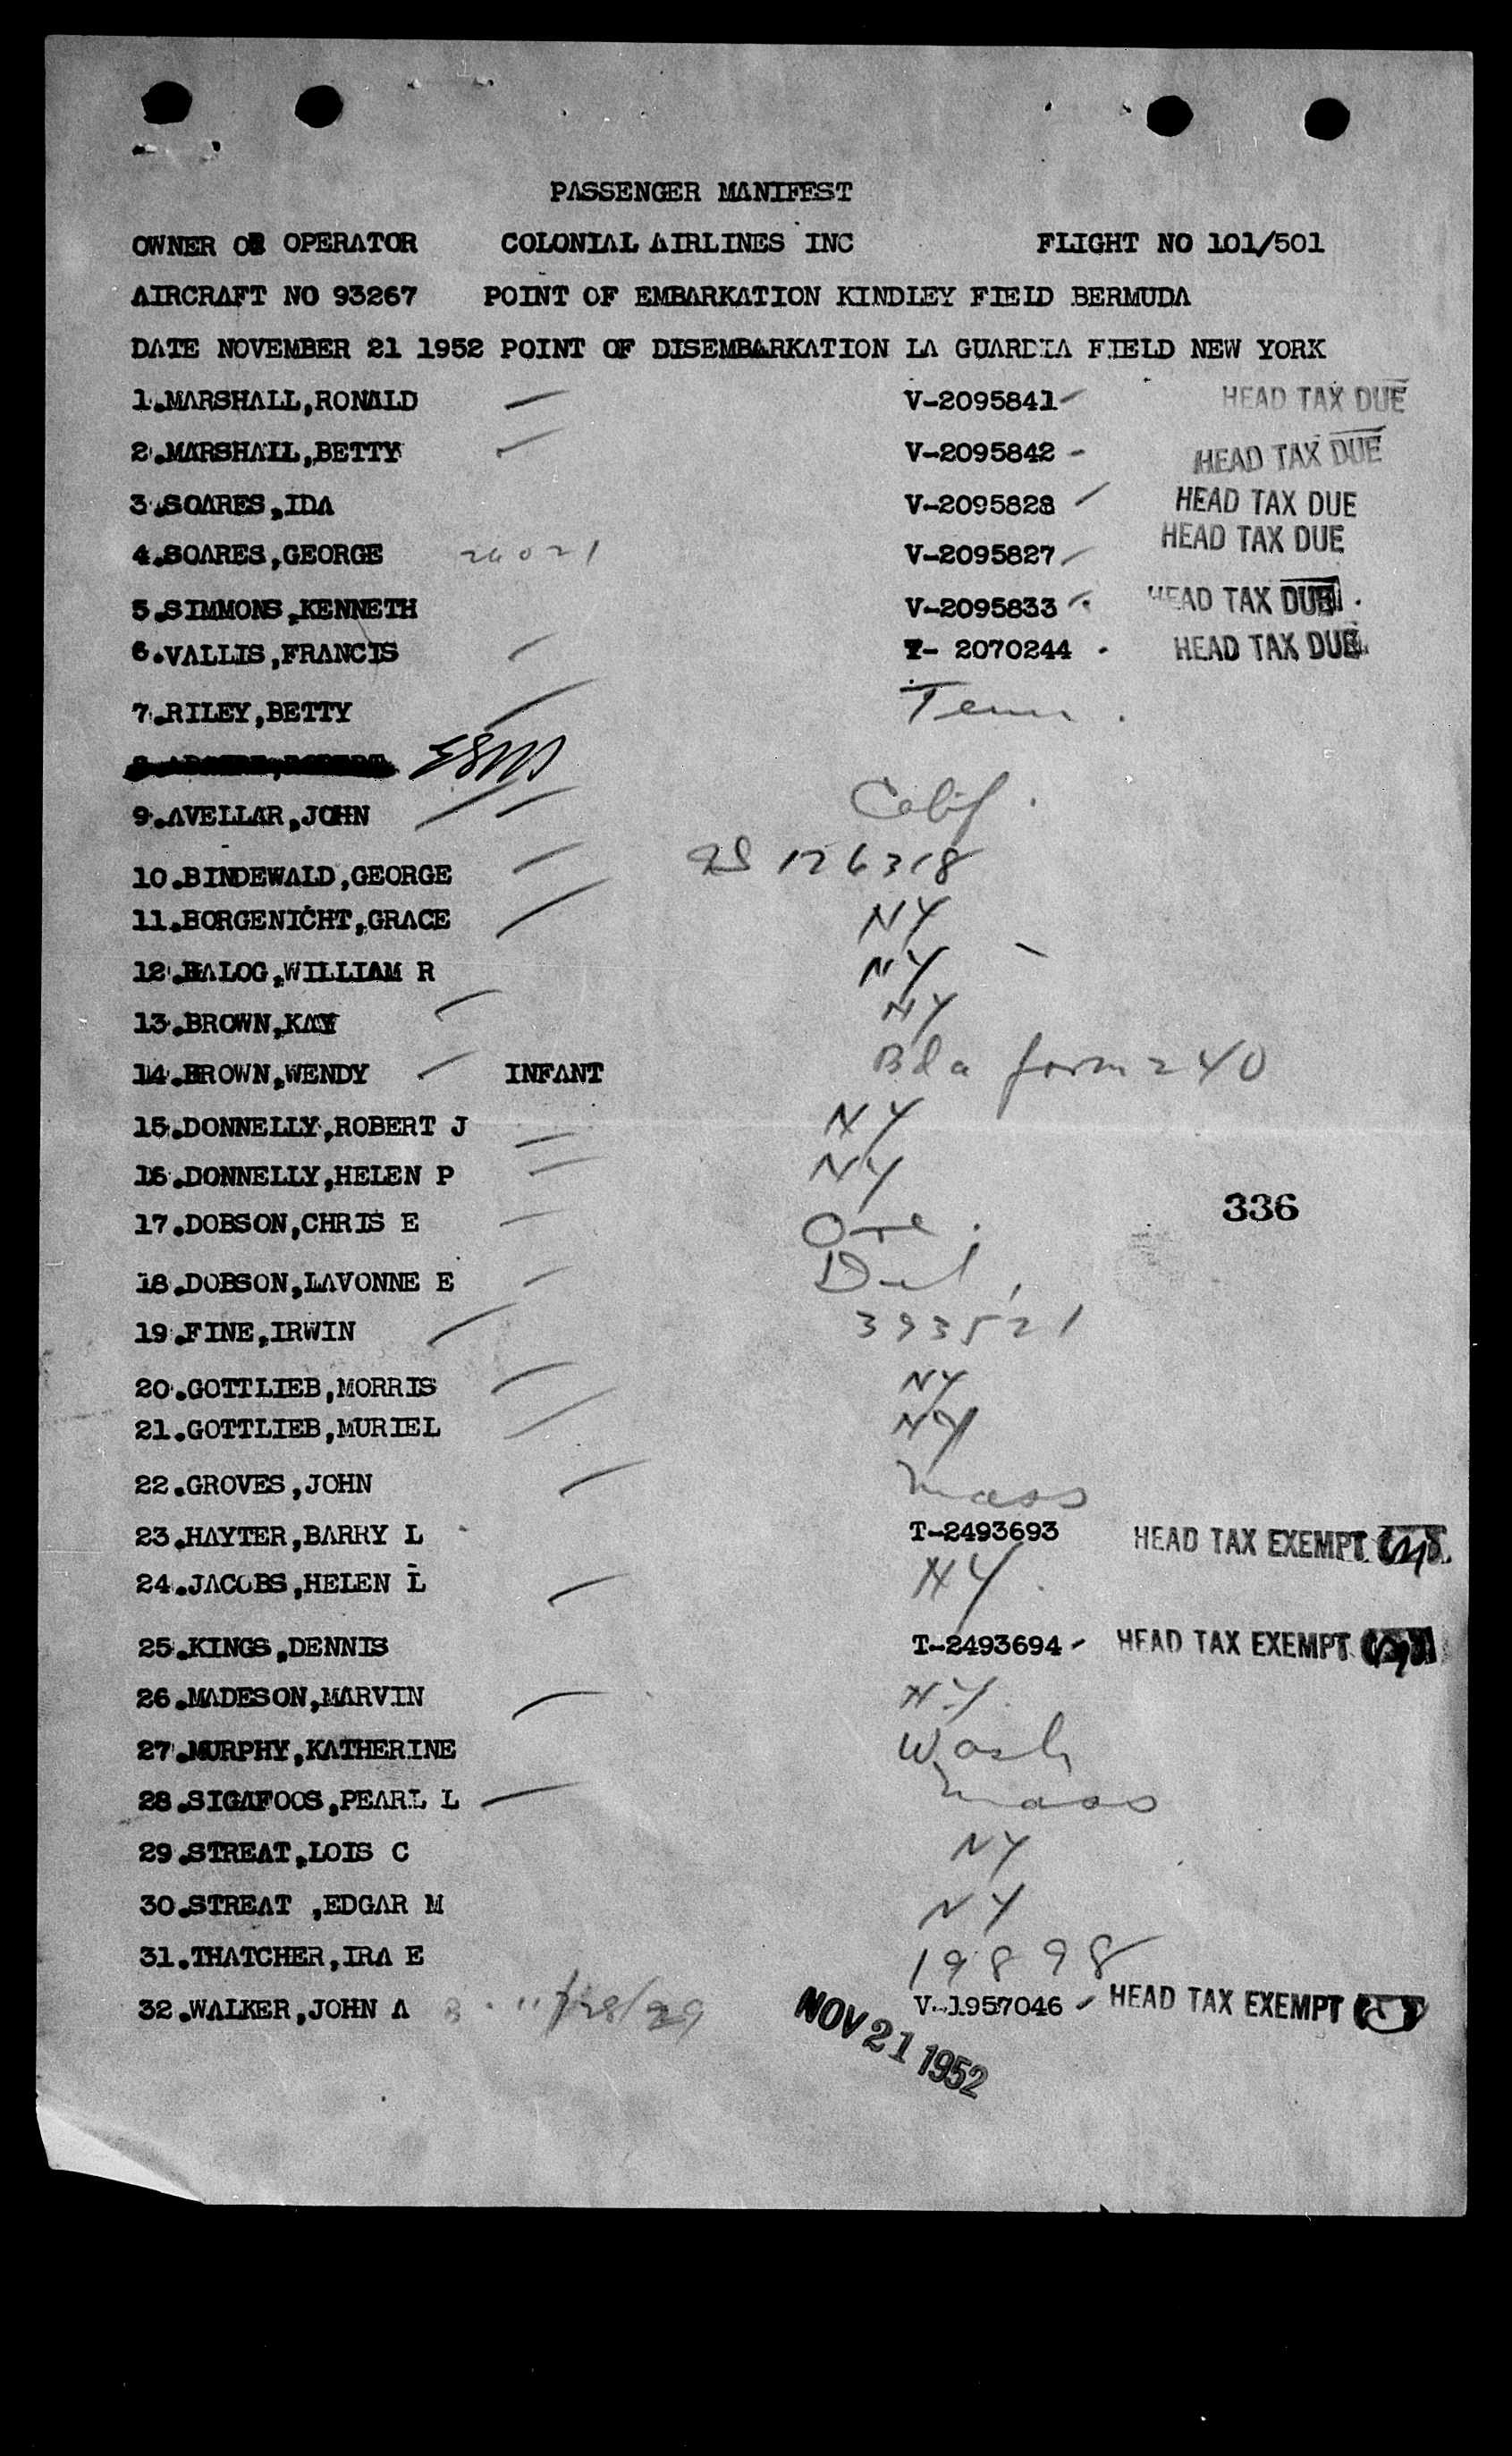 PASSENGER MANIFEST
OWNER OR OPERATOR COLONIAL AIRLINES INC FLIGHT NO 101/501
AIRCRAFT NO 93267 POINT OF EMBARKATION KINDLEY FIELD BERMUDA
DATE NOVEMBER 21 1952 POINT OF DISEMBARKATION LA GUARDIA FIELD NEW YORK
1.MARSHALL,RONALD V-2095841 HEAD TAX DUE
2.MARSHALL,BETTY V-2095842 HEAD TAX DUE
3.SOARES,IDA V-2095828 HEAD TAX DUE
4.SOARES,GEORGE 26021 V-2095827 HEAD TAX DUE
5.SIMMONS,KENNETH V-2095833 HEAD TAX DUE
6.VALLIS,FRANCIS T- 2070244 HEAD TAX DUE
7.RILEY,BETTY Tenn.
9.AVELLAR,JOHN Calif.
10.BINDEWALD,GEORGE 126318
11.BORGENICHT,GRACE NY
12.BALOG,WILLIAM R NY
13.BROWN,KAY NY
14.BROWN,WENDY INFANT Bda form 240
15.DONNELLY,ROBERT J NY
16.DONNELLY,HELEN P NY
17.DOBSON,CHRIS E Ore.
18.DOBSON,LAVONNE E
336
19.FINE,IRWIN 393521
20.GOTTLIEB,MORRIS NY
21.GOTTLIEB,MURIEL NY
22.GROVES,JOHN Mass
23.HAYTER,BARRY L T-2493693 HEAD TAX EXEMPT
24.JACOBS,HELEN L NY
25.KINGS,DENNIS T-2493694 HEAD TAX EXEMPT
26.MADESON,MARVIN NY
27.MURPHY,KATHERINE Wash
28.SIGAFOOS,PEARL L Mass
29.STREAT,LOIS C NY
30.STREAT ,EDGAR M NY
31.THATCHER,IRA E 19898
32.WALKER,JOHN A V-1957046 HEAD TAX EXEMPT
NOV 21 1952